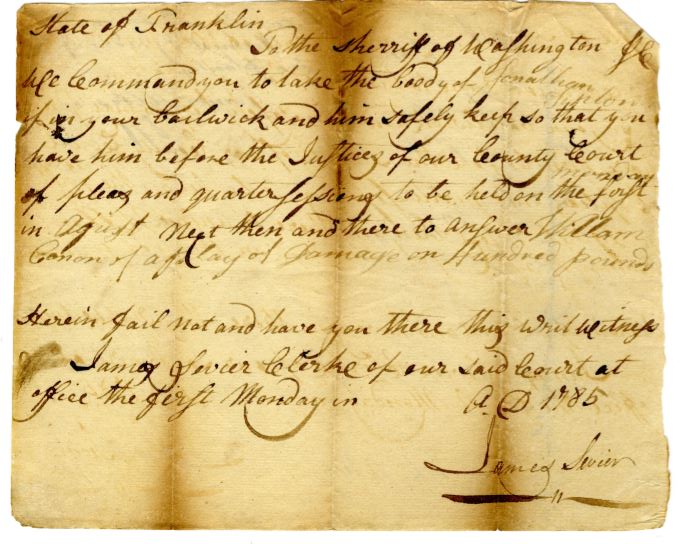 State of Franklin
To the Sherriff of Washington
We Command you to take the boody of Jonathan
Tipton
if in your bailwick and him safely keep so that you
have him before the Justices of our County Court
monday
of pleas and quarter Sessions to be held on the first
in Agust Next then and there to answer William
Conon of a play of Damage on Hundred pounds
Herein fail not and have you there this writ witness
James Sevier Clerke of our said Court at
office the first Monday in A. D 1785
James Sevier